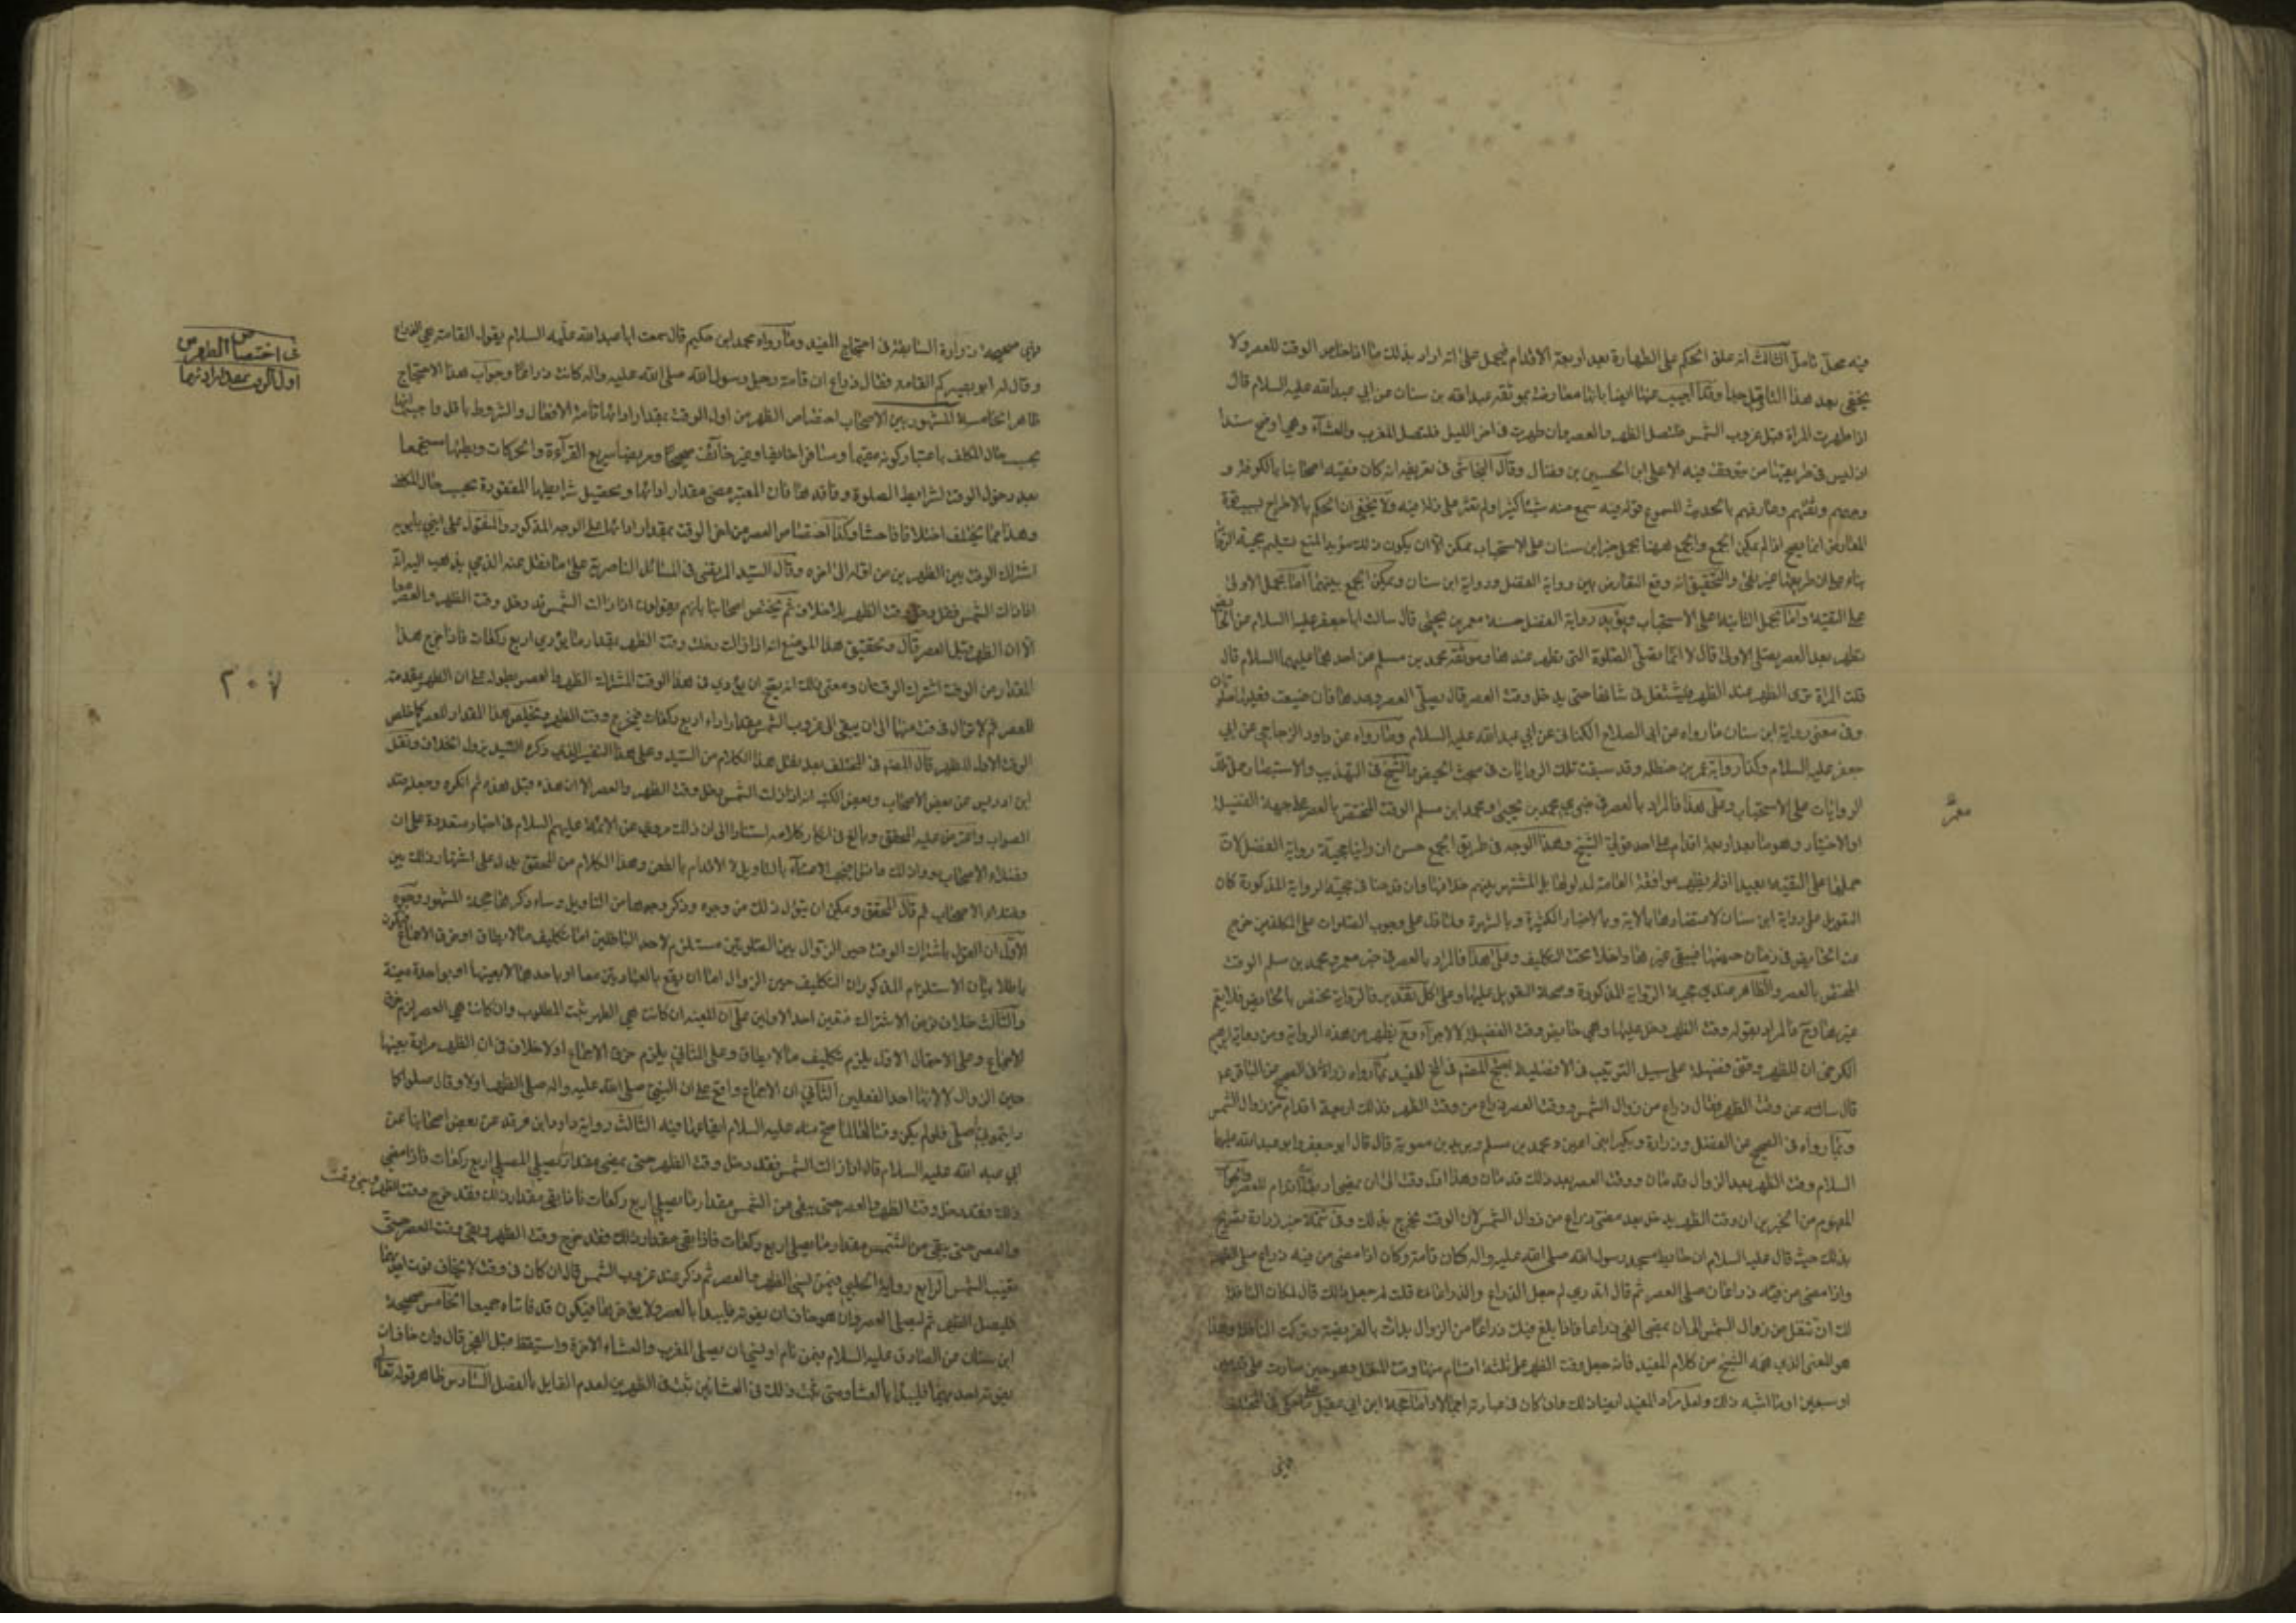 فيه محل تامل الثالث انه علق الحكم على الطهارة بعد اربعة الاقدام فيحمل على انه اراد بذلك ما اذا خلص الوقت للعصر ولا
يخفى بعد هذا التاويل جدا وقد اجيب عنها ايضا بانها معارضة بموثقة عبدالله بن سنان عن ابي عبدالله عليه السلام قال
اذا طهرت المراة قبل غروب الشمس فلتصل الظهر والعصر وان طهرت في اخر الليل فلتصل المغرب والعشاء وهي اوضح سندا
اذ ليس في طريقها من يتوقف فيه الا علي بن الحسين بن فضال وقال النجاشي في تعريفه انه كان فقيه اصحابنا بالكوفة و
وجههم وثقتهم وعارفهم بالحديث المسموع قوله فيه سمع منه شيئا كثيرا ولم نعثر على زلة فيه ولا يخفى ان الحكم بالاطراح لسبب قوة
المعارض انما يصح اذا لم يمكن الجمع والجمع ههنا بحمل خبر ابن سنان على الاستحباب ممكن الا ان يكون ذلك مؤيد المنع تسليم حجية الرواية
بناء على ان طريقها غير نقي والتحقيق انه وقع التعارض بين رواية الفضل ورواية ابن سنان ويمكن الجمع بينهما اما بحمل الاولى
على التقية واما بحمل الثانية على الاستحباب ويؤيد رواية الفضل حسنة معمر بن يحيى قال سالت ابا جعفر عليه السلام عن الحائض
تطهر بعد العصر تصلى الاولى قال لا انما تصلي الصلوة التي تطهر عندها وموثقة محمد بن مسلم عن احدهما عليهما السلام قال
قلت المراة ترى الطهر عند الظهر فتشتغل في شانها حتى يدخل وقت العصر قال تصلي العصر وحدها فان ضيعت فعليها صلوتان
وفي معنى رواية ابن سنان ما رواه عن ابي الصلاح الكناني عن ابي عبدالله عليه السلام وما رواه عن داود الزجاجي عن ابي
جعفر عليه السلام وكذا رواية عمر بن حنظله وقد سبقت تلك الروايات في مبحث الحيض والشيخ في التهذيب والاستبصار حمل تلك
الروايات على الاستحباب وعلى هذا فالمراد بالعصر في خبري محمد بن يحيى ومحمد ابن مسلم الوقت المختص بالعصر على جهة الفضيلة
او الاختيار وهو ما بعد اربعة اقدام على احد قولي الشيخ وهذا الوجه في طريق الجمع حسن ان راينا حجية رواية الفضل لان
حملها على التقية بعيد اذ لم يظهر موافقة العامة لمدلولها بل المشتهر بينهم خلافها وان قدحنا في حجية الرواية المذكورة كان
التعويل على رواية ابن سنان لاعتضادها بالاية وبالاخبار الكثيرة وبالشهرة ولما دل على وجوب الصلوات على المكلفين خرج
عنه الحائض في زمان حيضها فيبقى غيرها داخلا تحت التكليف وعلى هذا فالمراد بالعصر في خبر معمر ومحمد بن مسلم الوقت
المختص بالعصر والظاهر عندي حجية الرواية المذكورة وصحة التعويل عليها وعلى كل تقدير فالرواية تختص بالحائض فلا يعم
غيرها وح فالمراد بقوله وقت الظهر دخل عليها وهي حائض وقت الفضيلة لا الاجزاء وح يظهر من هذه الرواية ومن رواية ابرهيم
الكرخي ان للظهر وقتي فضيلة على سبيل الترتيب في الافضلية احتج المصنف في المخ للمفيد بما رواه زرارة في الصحيح عن الباقر ع
قال سالته عن وقت الظهر فقال ذراع من زوال الشمس ووقت العصر ذراع من وقت الظهر فذلك اربعة اقدام من زوال الشمس
وبما رواه في الصحيح عن الفضل وزرارة وبكير ابني اعين ومحمد بن مسلم وبريد بن معوية قال قال ابو جعفر وابو عبدالله عليهما
السلام وقت الظهر بعد الزوال قدمان ووقت العصر بعد ذلك قدمان وهذا اول وقت الى ان يمضي اربعة اقدام للعصر
المفهوم من الخبرين ان وقت الظهر يدخل بعد مضي ذراع من زوال الشمس لان الوقت يخرج بذلك وفي تتمة خبر زرارة تصريح
بذلك حيث قال عليه السلام ان حايط مسجد رسول الله صلى الله عليه واله كان قامة وكان اذا مضى من فيه ذراع صلى الظهر
واذا مضى من فيئه ذراعان صلى العصر ثم قال اتدري لم جعل الذراع والذراعان قلت لم جعل ذلك قال لمكان النافلة
لك ان تتنفل من زوال الشمس الى ان يمضي الفئ ذراعا فاذا بلغ فيئك ذراعا من الزوال بدات بالفريضة وتركت النافلة وهذا
هو المعنى الذي فهمه الشيخ من كلام المفيد فانه جعل وقت الظهر على ثلثة اقسام منها وقت المتنفل وهو حين صارت على قدمين
او سبعين او ما اشبه ذلك ولعل مراد المفيد ايضا ذلك وان كان في عبارته اجمالا واما حجة ابن ابي عقيل على ما حكى في المختلف
فهي
معمر
فهي صحيحة زرارة السابقة في احتجاج المفيد وما رواه محمد ابن حكيم قال سمعت ابا عبدالله عليه السلام يقول القامة هي الذراع
وقال له ابو بصير كم القامة فقال ذراع ان قامة رحل رسول الله صلى الله عليه واله كانت ذراعا وجواب هذا الاحتجاج
ظاهر الخامسة المشهور بين الاصحاب اختصاص الظهر من اول الوقت بمقدار ادائها تامة الافعال والشروط باقل واجباتها
بحسب حال المكلف باعتبار كونه مقيما ومسافرا خايفا وغير خائف صحيحا ومريضا سريع القرآءة والحركات وبطيئها مستجمعا
بعد دخول الوقت لشرايط الصلوة وفاقدها فان المعتبر مضى مقدار ادائها وتحصيل شرايطها المفقودة بحسب حال المكلف
وهذا مما يختلف اختلافا فاحشا وكذا اختصاص العصر من اخر الوقت بمقدار ادائها على الوجه المذكور والمنقول عن ابني بابويه
اشتراك الوقت بين الظهرين من اوله الى اخره وقال السيد المرتضى في المسائل الناصرية على ما نقل عنه الذي يذهب اليه انه
اذا زالت الشمس فقد دخل وقت الظهر بلا خلاف ثم يختص اصحابنا بانهم يقولون اذا زالت الشمس قد دخل وقت الظهر والعصر معا
الا ان الظهر قبل العصر قال وتحقيق هذا الموضع انه اذا زالت دخل وقت الظهر بمقدار ما يؤدي اربع ركعات فاذا خرج هذا
المقدار من الوقت اشترك الوقتان ومعنى ذلك انه يصح ان يؤدي في هذا الوقت المشترك الظهر والعصر بطوله على ان الظهر مقدمة
للعصر ثم لا تزال في وقت منها الى ان يبقى الى غروب الشمس مقدار اداء اربع ركعات فيخرج وقت الظهر ويخلص هذا المقدار للعصر كما خلص
الوقت الاول للظهر قال المصنف في المختلف بعد نقل هذا الكلام من السيد وعلى هذا التفسير الذي ذكره السيد يزول الخلاف ونقل
ابن ادريس عن بعض الاصحاب وبعض الكتب انه اذا زالت الشمس دخل وقت الظهر والعصر الا ان هذه قبل هذه ثم انكره وجعله ضد
الصواب واعترض عليه المحقق وبالغ في انكار كلامه استنادا الى ان ذلك مروي عن الائمة عليهم السلام في اخبار متعددة على ان
فضلاء الاصحاب رووا ذلك وافتوا به فيجب الاعتناء بالتاويل لا الاقدام بالطعن وهذا الكلام من المحقق يدل على اشتهار ذلك بين
فضلاء الاصحاب ثم قال المحقق ويمكن ان يتؤل ذلك من وجوه وذكر وجوها من التاويل وساذكرها حجة المشهور وجوه
الاول ان القول باشتراك الوقت حين الزوال بين الصلوتين مستلزم لاحد الباطلين اما تكليف ما لا يطاق او خرق الاجماع فيكون
باطلا بيان الاستلزام المذكور ان التكليف حين الزوال اما ان يقع بالعبادتين معا او باحدهما لا بعينها او بواحدة معينة
والثالث خلاف فرض الاشتراك فتعين احد الاولين على ان المعينه ان كانت هي الظهر ثبت المطلوب وان كانت هي العصر لزم خرق
الاجماع وعلى الاحتمال الاول يلزم تكليف ما لا يطاق وعلى الثاني يلزم خرق الاجماع اذ لا خلاف في ان الظهر مرادة بعينها
حين الزوال لا لانها احد الفعلين الثاني ان الاجماع واقع على ان النبي صلى الله عليه واله صلى الظهر اولا وقال صلوا كما
رايتموني اصلي فلو لم يكن وقتا لها لما صح منه عليه السلام ايقاعها فيه الثالث رواية داود ابن فرقد عن بعض اصحابنا عن
ابي عبد الله عليه السلام قال اذا زالت الشمس فقد دخل وقت الظهر حتى يمضي مقدار ما يصلي المصلي اربع ركعات فاذا مضى
ذلك فقد دخل وقت الظهر والعصر حتى يبقى من الشمس مقدار ما يصلي اربع ركعات فاذا بقي مقدار ذلك فقد خرج وقت الظهر وبقي وقت
والعصر حتى يبقى من الشمس مقدار ما يصلي اربع ركعات فاذا بقي مقدار ذلك فقد خرج وقت الظهر وبقي وقت العصر حتى
تغيب الشمس الرابع رواية الحلبي فيمن نسي الظهر والعصر ثم ذكر عند غروب الشمس قال ان كان في وقت لا يخاف فوت احديهما
فليصل الظهر ثم ليصلي العصر وان هو خاف ان يفوته فليبدا بالعصر ولا يؤخرها فيكون قد فاتتاه جميعا الخامس صحيحة
ابن سنان عن الصادق عليه السلام فيمن نام او نسي ان يصلي المغرب والعشاء الاخرة واستيقظ قبل الفجر قال وان خاف ان
يفوته احديهما فليبدا بالعشاء ومتى ثبت ذلك في العشائين ثبت في الظهرين لعدم القايل بالفصل السادس ظاهر قوله تعالى
في اختصاص الظهر من
اول الوقت بمقدار ادائها
٣٠٧